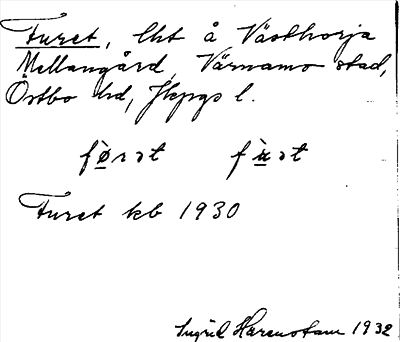 Furet, lht å Västhorja
Mellangård, Värnamo stad,
Östbo hd, Jkpgs l.
fø̀rət fùət
Furet kb 1930
Ingrid Harenstam 1932